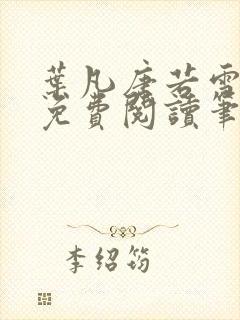 葉凡唐若雪
免費閱讀筆
李紹筠